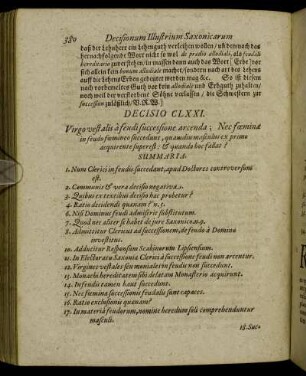 380 Decisionum Illustrium Saxonicarum
daß der Lehnherr ein Lehengut verleihen wollen / und dennoch das
hernachfolgende Wort nicht so wol de prædio allodiali, als feudali
hereditario zuverstehen, in massen dann auch das Wort / Erbe / vor
sich allein kein bonum allodiale macht, sondern auch auf der Lehen
auff die Lehens Erben gedeutet werden mag &c. So ist diesen
nach vorberuhrtes Gut
noch weil der verstorbene Söhne verlassen / die Schwestern zur
succession zuläßlich, V.R.W.)
DECISIO CLXXI.
Virgo vestalis à feudi successione arcenda; Nec fœminæ
in feudo fœmineo succedunt, quamdiu masculus ex primo
acquirente superest; & quando hoc fallat?
SUMMARIA.
1. Num Clerici in feudis succedant, apud Doctores controversum
est.
2. Communis & vera decisio negativa.
3. Quibus ex textibus decisio hæc probetur?
4. Ratio decidendi quænam? n. 5.
6. Nisi Dominus feudi admiserit substitutum.
7. Quod nec aliter se habet de jure Saxonico.
8. Admittitur Clericus ad successionem, de feudo à Domino
investitus.
10. Adducitur Responsum Scabinorum Lipsensium.
11. In Electoratu Saxoniæ Clerici à successione feudi non arcentur.
12. Virgines vestales seu moniales in feudum non succedunt.
13. Monachi hereditatem sibi delatam Monasterio acquirunt.
14. In feudis tamen haut succedunt.
15. Nec fœmina successionis feudalis sunt capaces.
16. Ratio exclusionis quænam?
17. In materia feudorum, nomine heredum soli comprehenduntur
masculi.
18. Suc-